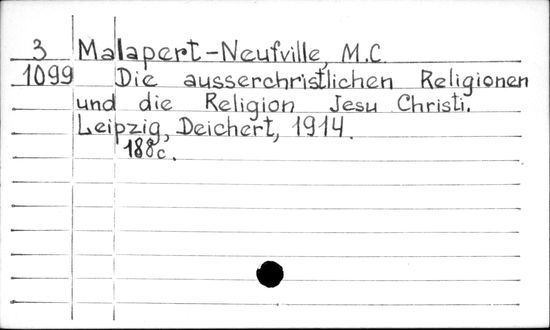 3 Malapert-Neufville, M.C.
1099 Die ausserchristlichen Religionen
und die Religion Jesu Christi.
Leipzig, Deichert, 1914.
188c.